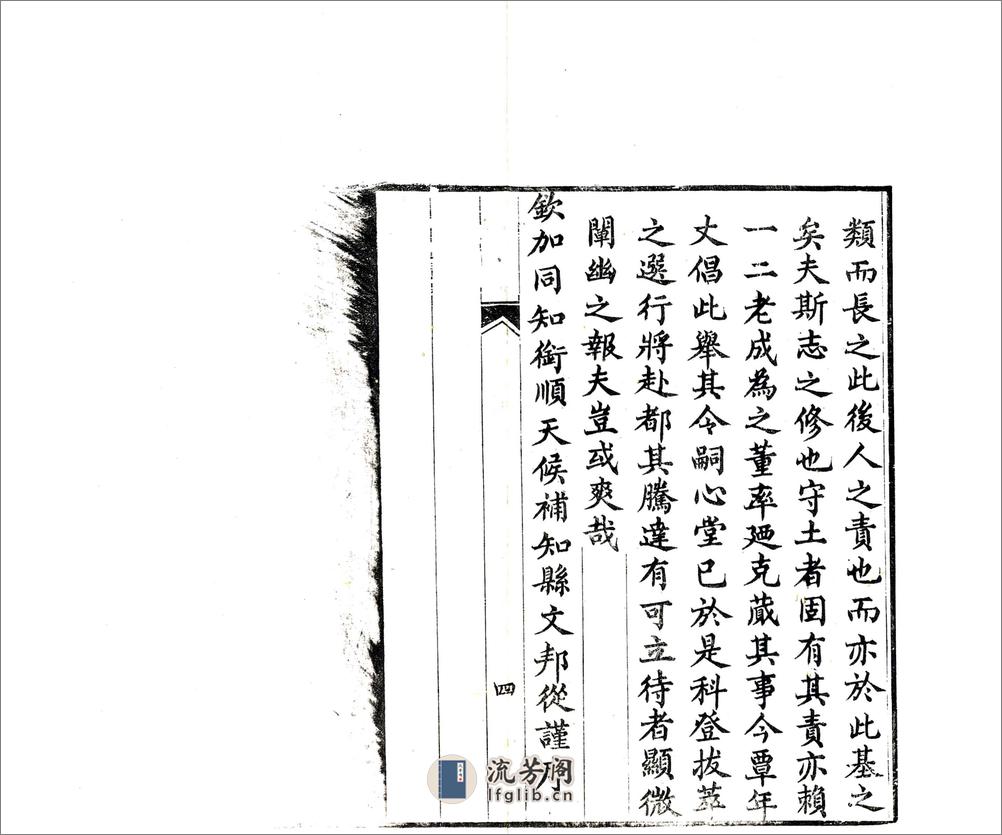 類而長之此後人之責也而亦於此基之
矣夫斯志之修也守土者固有其責亦賴
一二老成為之董率廼克蕆其事今覃年
丈倡此舉其令嗣心堂已於是科登拔萃
之選行將赴都其騰達有可立待者顯微
闡幽之報夫豈或爽哉
欽加同知銜順天候補知縣文邦從謹序
四
流芳阁
lfglib.cn